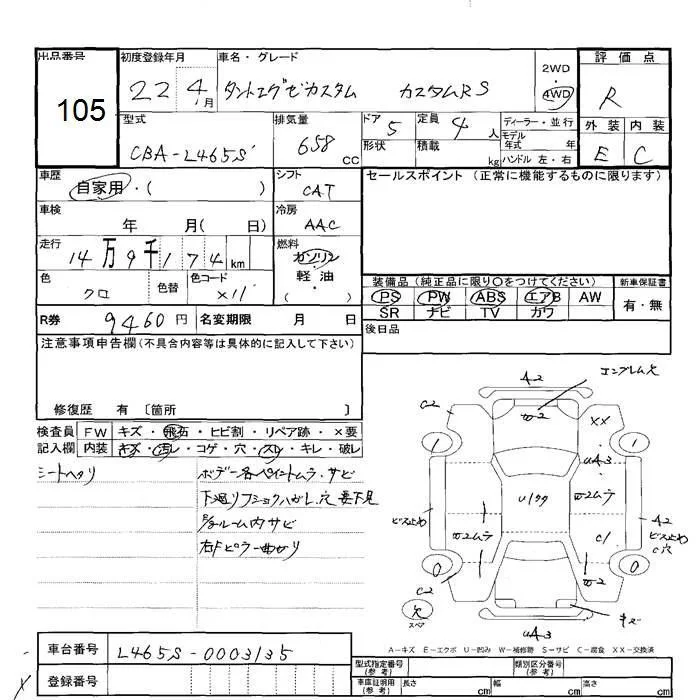 出品番号
105
初度登録年月
22 4月
車名・グレード
タントエグゼカスタム カスタムRS
2WD
・
4WD
評価点
R
外装 内装
E C
型式
CBA-L465S
排気量
658 cc
ドア
5
定員
4人
形状
積載
kg
ディーラー・並行
モデル年式 年
ハンドル 左・右
車歴
自家用・( )
シフト
CAT
セールスポイント (正常に機能するものに限ります)
車検
年 月( 日)
冷房
AAC
走行
14万9千174km
燃料
ガソリン
・
軽油
( )
色
クロ
色替
色コード
X11
装備品(純正品に限り○をつけてください)
PS PW ABS エアB AW
SR ナビ TV カワ
新車保証書
有・無
R券
9460円
名変期限 月 日
後日品
注意事項申告欄(不具合内容等は具体的に記入して下さい)
修復歴 有 〔箇所 〕
検査員
記入欄
FW キズ・飛石・ヒビ割・リペア跡・×要
内装 キズ・汚レ・コゲ・穴・スレ・キレ・破レ
シートヘタリ
ボデー各ペイントムラ・サビ
下廻りフショクハガレ.穴 要下見
ルーム内サビ
右Fピラー曲がり
A2
エンブレム穴
C2
XX
1
1
UA3
U1クク
ムラ
ビス止め
A2
ビス止め
C穴
C1
0
0
C2
欠
スペア
キズ
UA3
A-キズ E-エクボ U-凹み W-補修跡 S-サビ C-腐食 XX-交換済
車台番号
L465S-0003135
登録番号
型式指定番号
(参考)
類別区分番号
(参考)
車庫証明用
(参考)
長さ cm
幅 cm
高さ cm